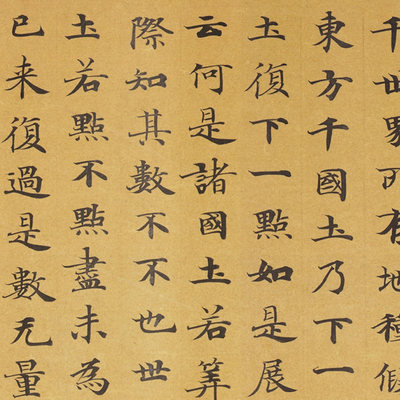 千世界所有地種假
東方千國土乃下一
土復下一點如是展
云何是諸國土若筭
際知其數不不也世
土若點不點盡未為
已来復過是數无量